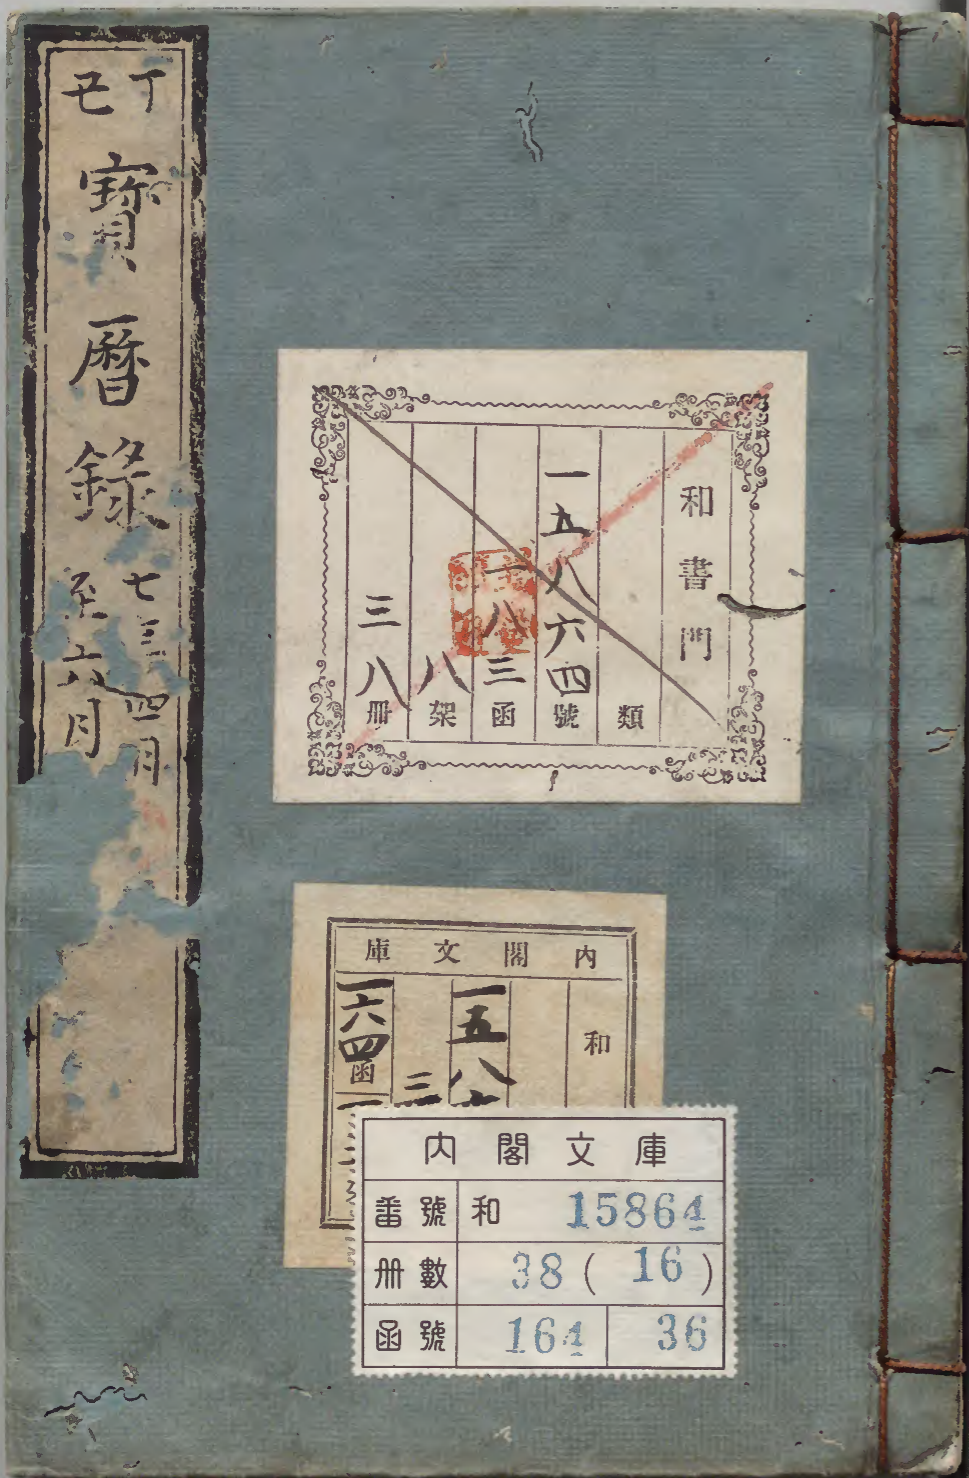 丁丑
寶曆錄
七三四月
至六月
和書門
類
一五八六四號
一八三函
八架
三八冊
内閣文庫
和
一五八
三
一六四函
内閣文庫
番號 和 15864
冊數 38 ( 16 )
函號 164 36